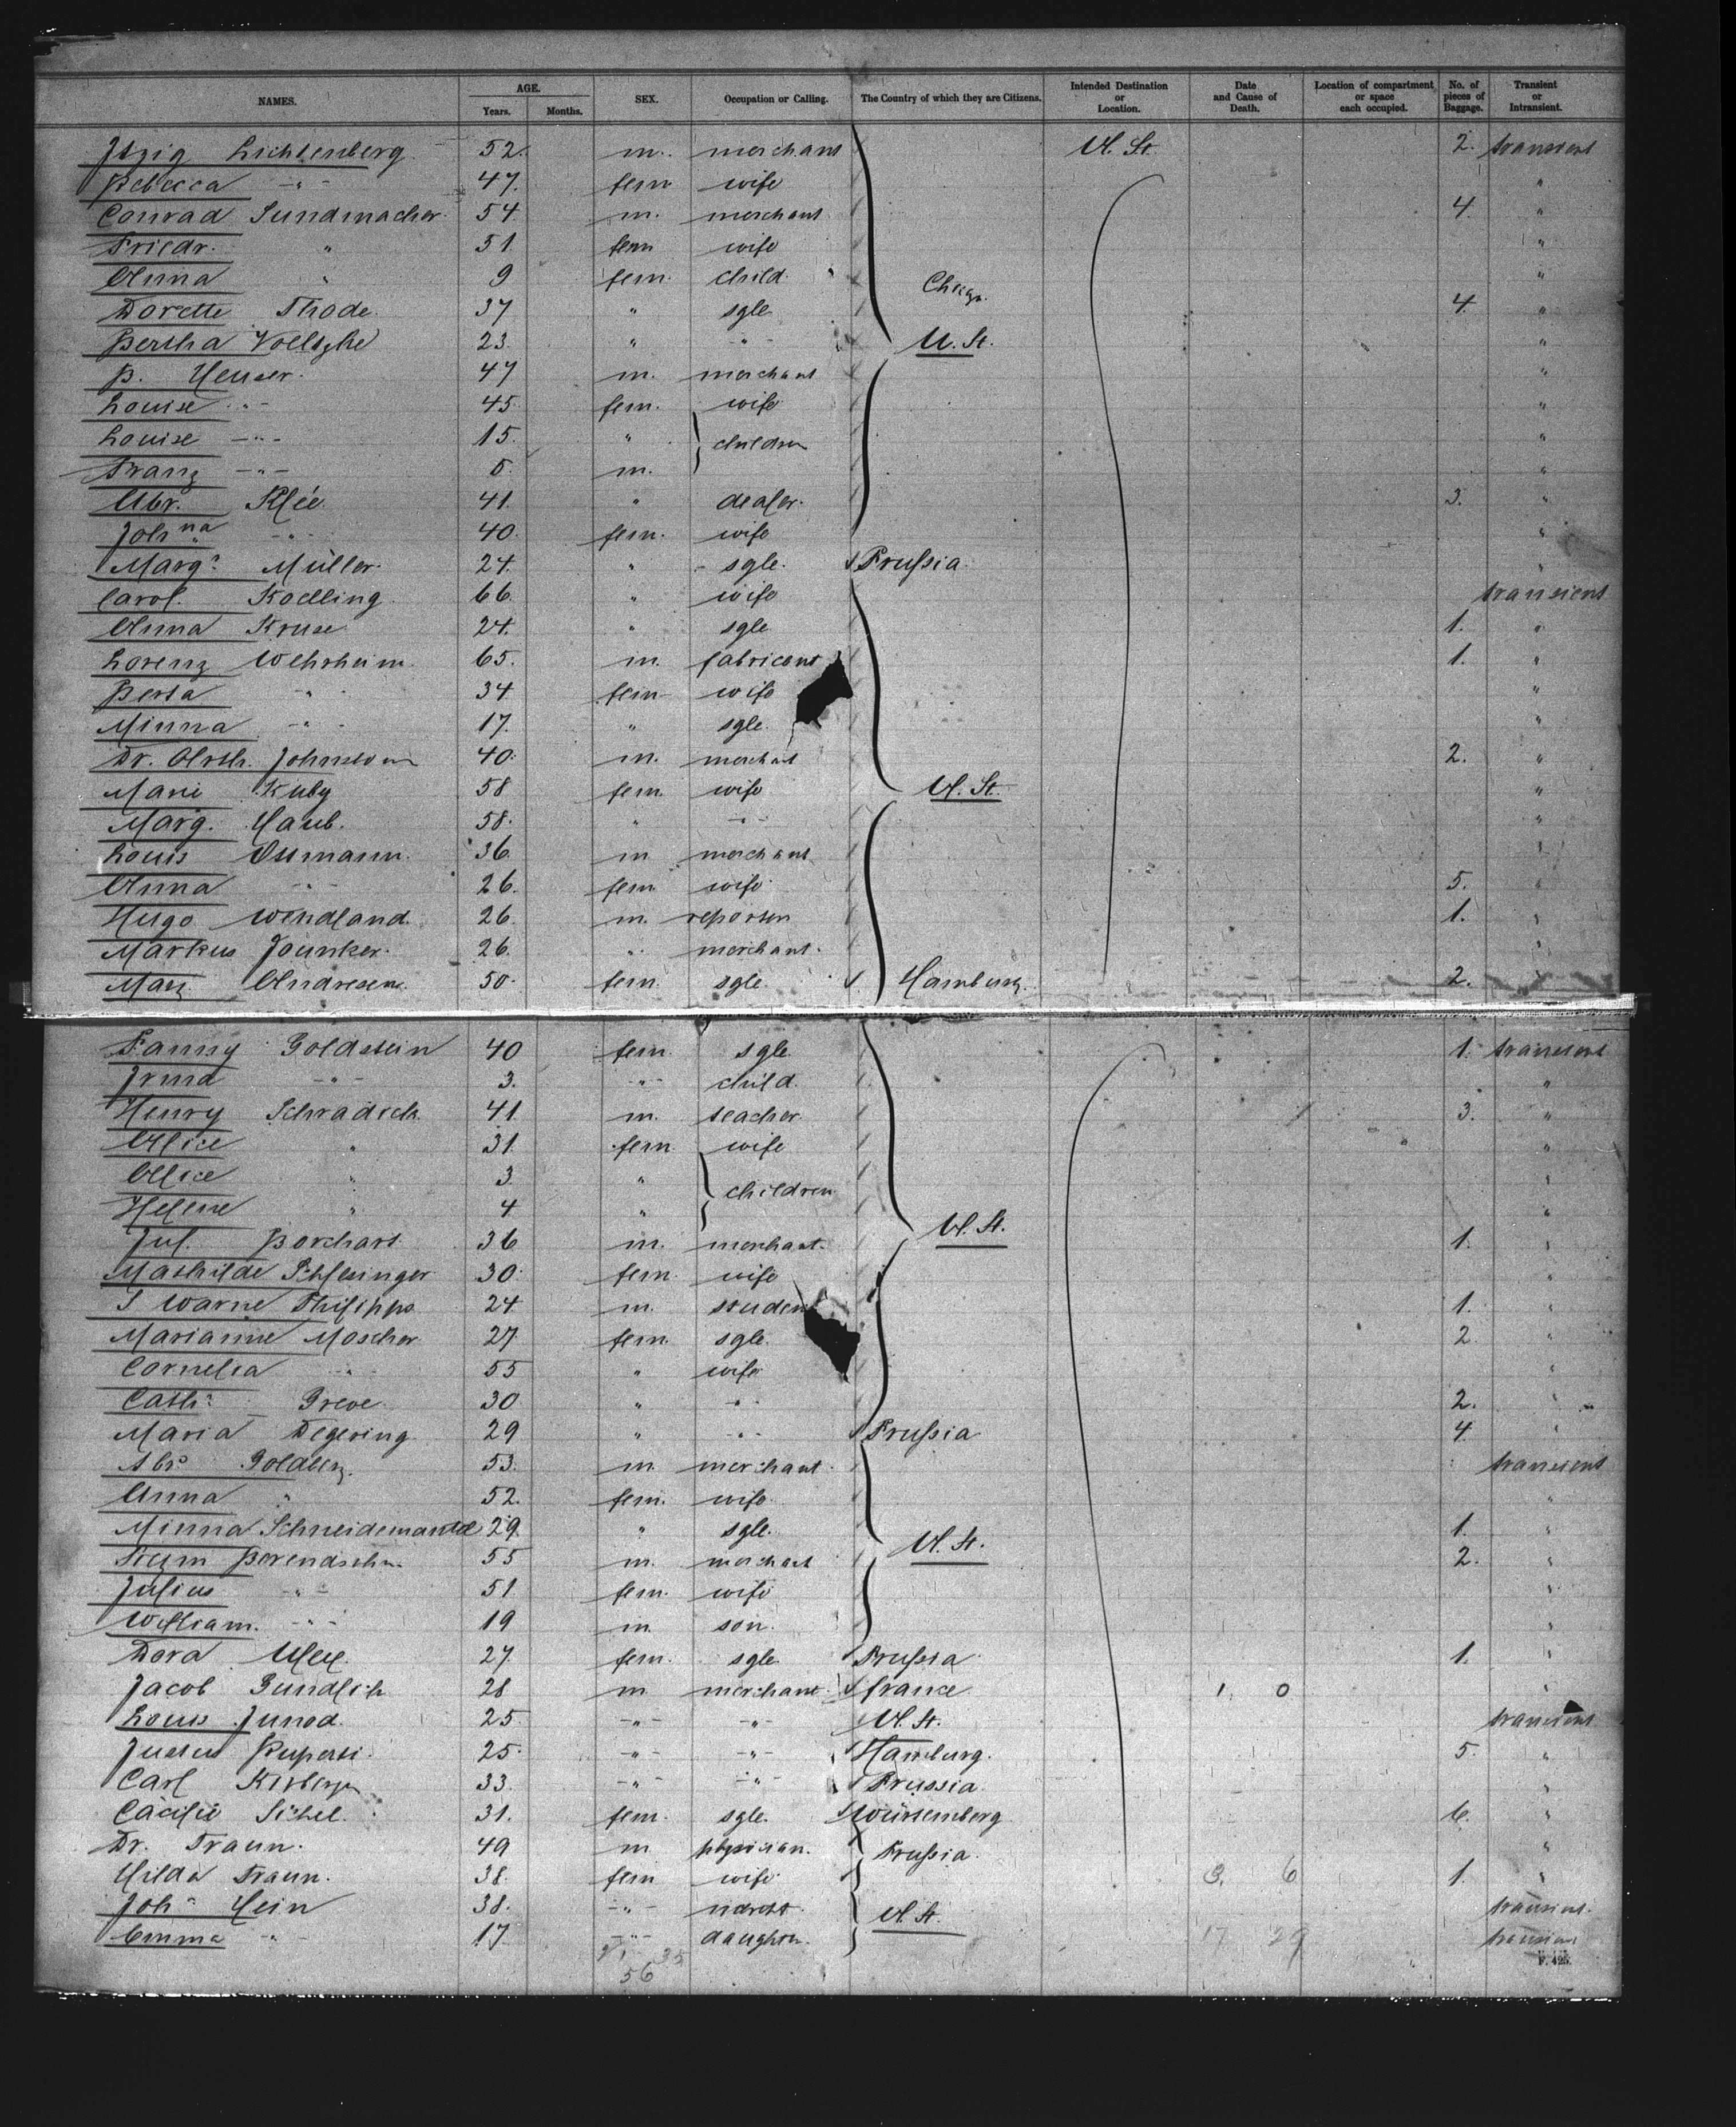 NAMES. AGE. Years. Months. SEX. Occupation or Calling. The Country of which they are Citizens. Intended Destination or Location. Date and Cause of Death. Location of compartment or space each occupied. No. of pieces of Baggage. Transient or Intransient.
Itzig Lichtenberg 52. m. merchant U. St. 2. transient
Rebecca -"- 47. fem wife "
Conrad Sundmacher 54 m. merchant 4. "
Friedr. " 51 fem wife "
Anna " 9 fem. child. " "
Dorette Thode. 37 " sgle 4. "
Bertha 23. " -"- U. St. "
B. Heuser. 47 m. merchant "
Louise -"- 45. fem. wife "
Louise -"- 15. " children "
Franz -"- 5. m. "
Abr. Klée. 41. " dealer. 3. "
Joh.na -"- 40. fem. wife "
Marg. Müller. 24. " sgle. Prussia. "
Carol. Koelling 66. " wife transient
Anna Kruse 24. " sgle 1. "
Lorenz Wehrheim. 65. m. fabricant 1. "
Berta -"- 34 fem wife "
Minna -"- 17. " sgle. "
Dr. Arth. Johnstown 40. m. merchant 2. "
Marie Kuby 58 fem. wife U. St. "
Marg. Haub. 58. " -"- "
Louis Ossmann. 36 m merchant "
Anna -"- 26. fem wife 5. "
Hugo Wendland. 26 m. reporter 1. "
Markus Jounker. 26. " merchant. "
Marg. Andresen. 50. fem. sgle Hamburg. 2. "
Fanny Goldstein 40 fem. sgle 1. transient
Irma -"- 3. -"- child. "
Henry Schradieck 41. m. teacher 3. "
Alice " 31. fem. wife "
Alice " 3 " children "
Helene " 4 " "
Jul. Borchart 36 m. merchant. U. St. 1. "
Mathilde Schlesinger 30. fem. wife "
S Warne Philipps 24 m. student 1. "
Marianne Moscher 27 fem. sgle. 2 "
Cornelia -"- 55 " wife "
Cath. Greve 30 " -"- 2. "
Maria Degering 29 " -"- Prussia 4. "
Abr. Goldberg. 53. m merchant transient
Anna " 52. fem. wife "
Minna Schneidemantel 29. " sgle. U. St. 1. "
55 m. merchant 2. "
Julius -"- 51 fem. wife "
William. -"- 19 m. son. "
Dora 27. fem. sgle Prussia 1. "
Jacob Gundlich 28 m merchant france 1. 0 "
Louis Junod. 25. -"- -"- U. St. transient
Justus Ruperti. 25. -"- -"- Hamburg. 5. "
Carl 33. -"- -"- Prussia. "
Cäcilie Sichel. 31. fem. sgle. Würtemberg 6. "
Dr. Traun. 49 m physician. Prussia. "
Hilda Traun. 38. fem wife 3. 6 1. "
Joh. Hein 38. -"- U. St. transient.
Emma -"- 17. -"- daughter. 17 29 transient
21 35
56
F. 425.